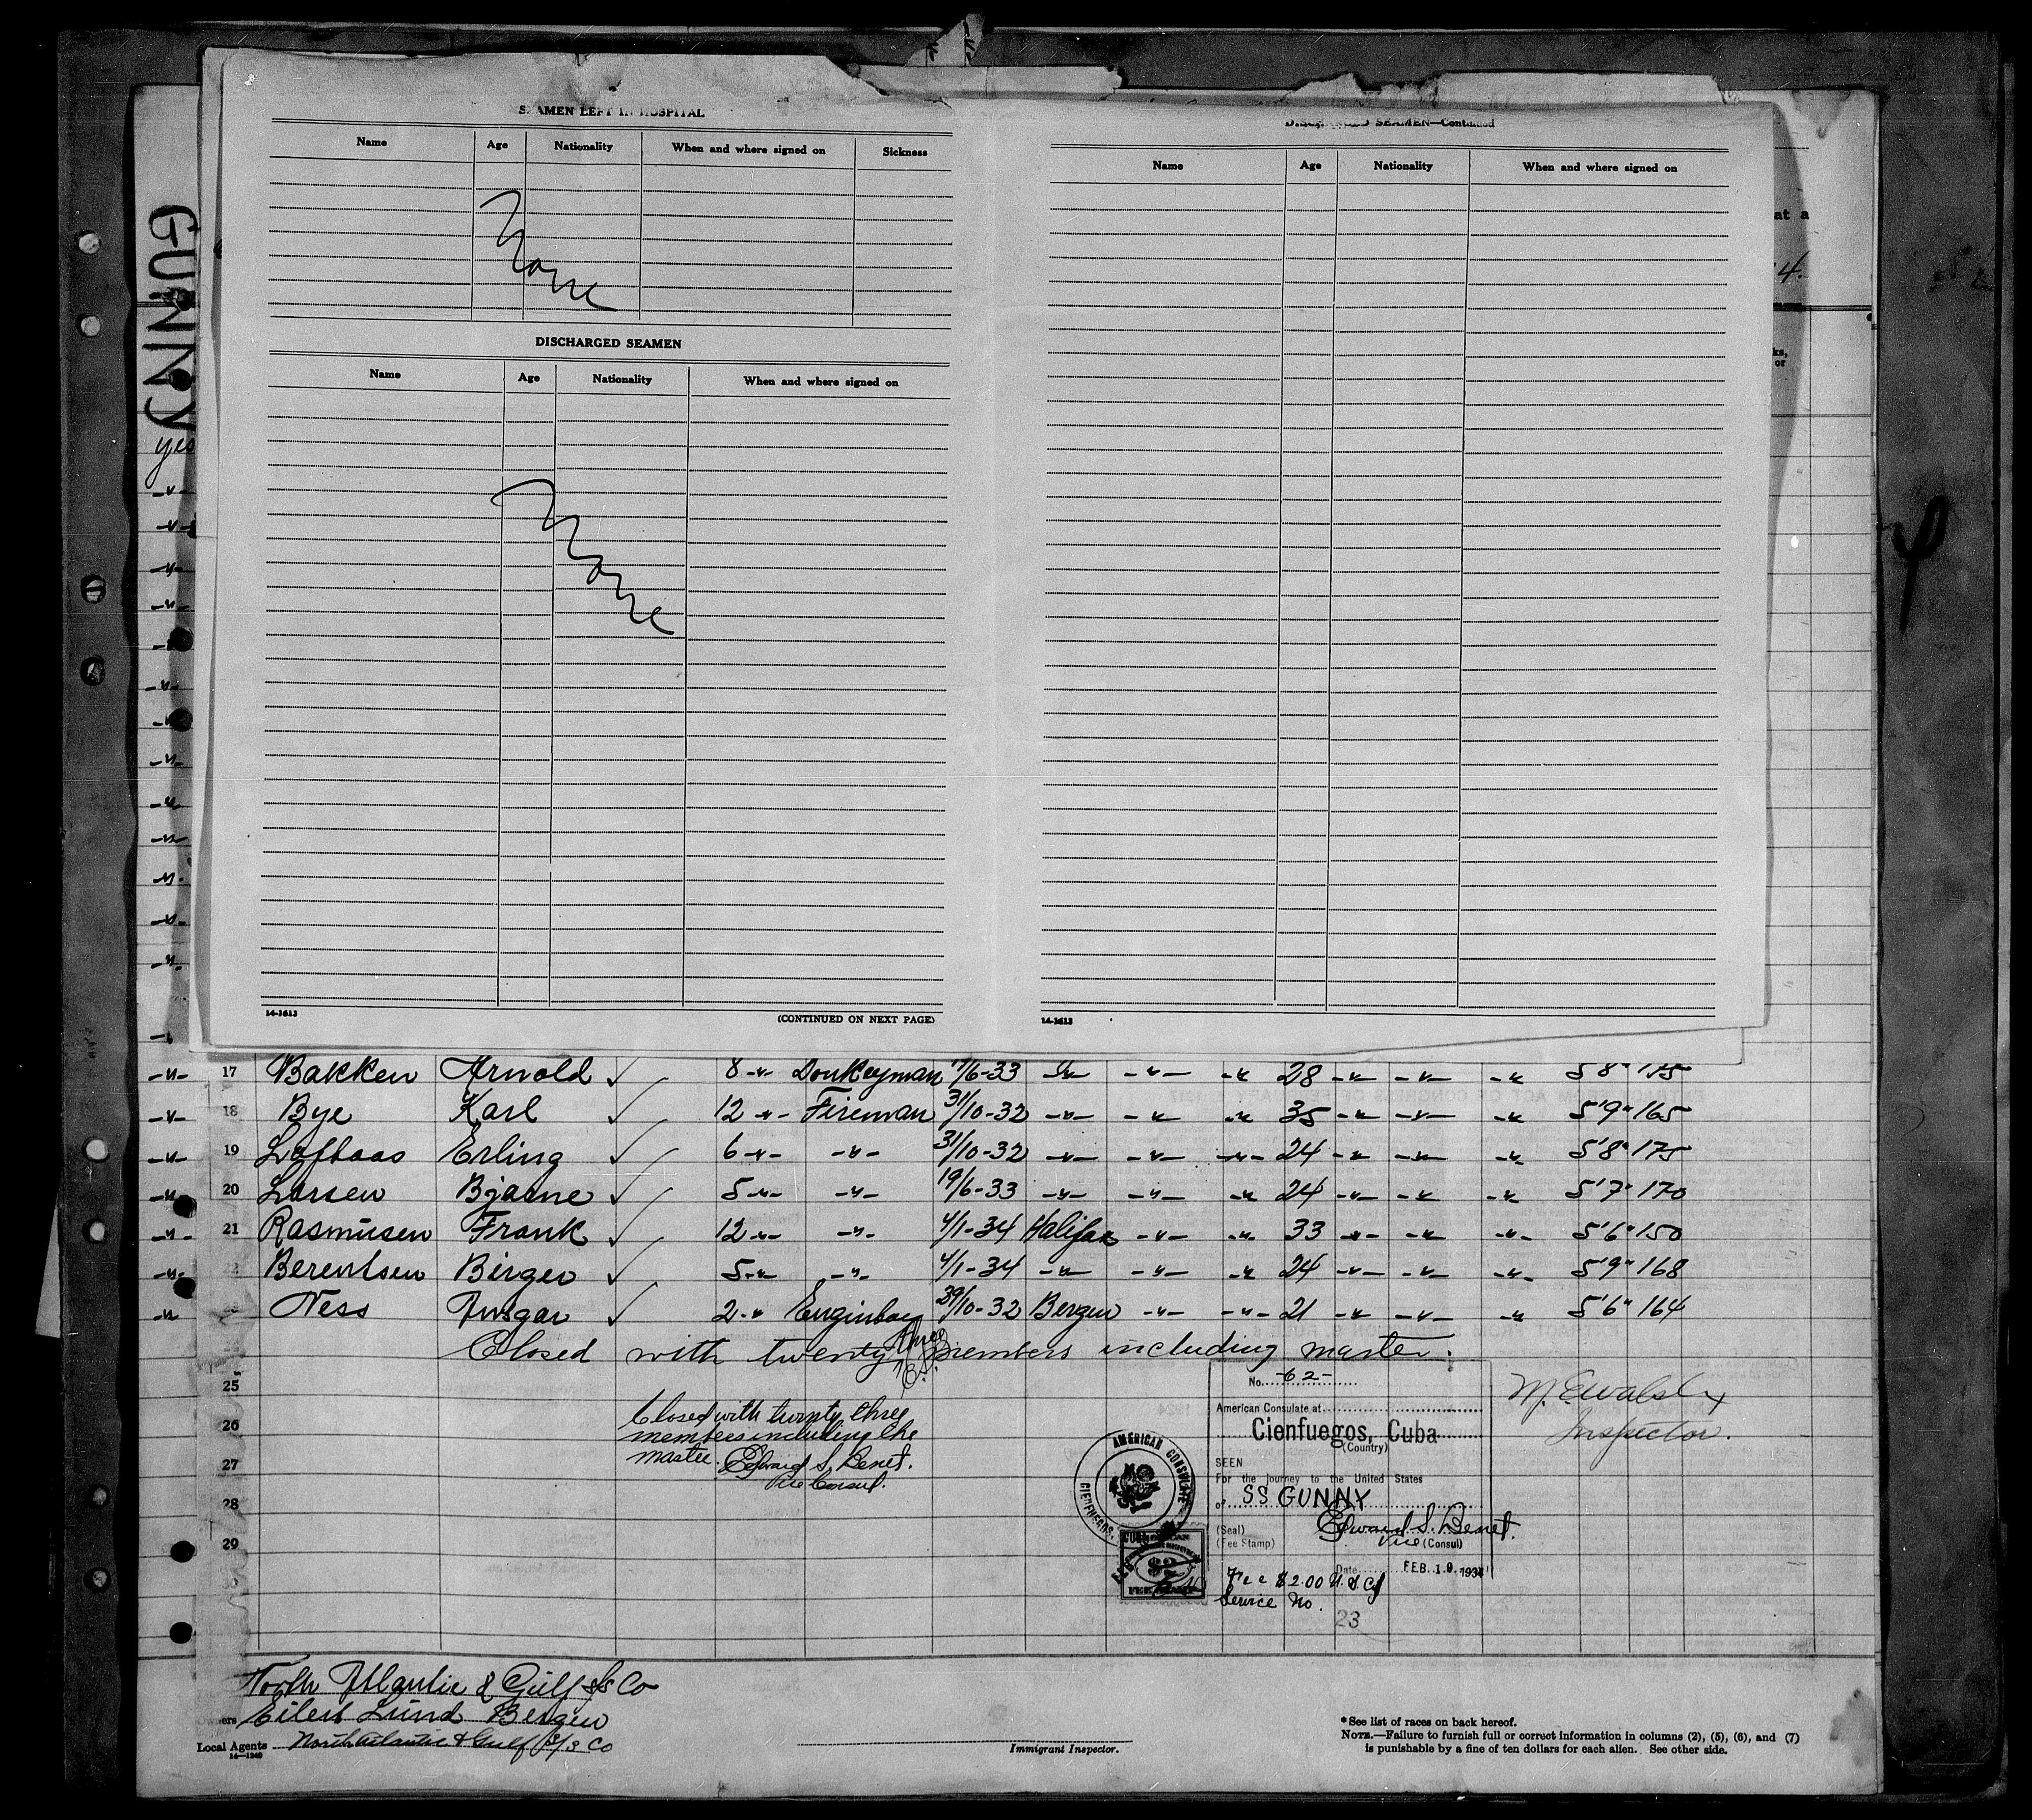 SEAMEN LEFT IN HOSPITAL
Name Age Nationality When and where signed on Sickness
None
DISCHARGED SEAMEN
Name Age Nationality When and where signed on
None
14-1613 (CONTINUED ON NEXT PAGE)
DISCHARGED SEAMEN—Continued
Name Age Nationality When and where signed on
14-1613
GUNNY
yes
at a
4.
ks,
or
17 Bakken Arnold ✓ 8 -"- Donkeyman 19/6-33 -"- -"- -"- 28 -"- -"- -"- 5'8" 175
18 Bye Karl ✓ 12 -"- Fireman 31/10-32 -"- -"- -"- 35 -"- -"- -"- 5'9" 165
19 Erling ✓ 6 -"- -"- 31/10-32 -"- -"- -"- 24 -"- -"- -"- 5'8" 175
20 Larsen Bjarne ✓ 5 -"- -"- 19/6-33 -"- -"- -"- 24 -"- -"- -"- 5'7" 170
21 Rasmusen Frank ✓ 12 -"- -"- 4/1-34 Halifax -"- -"- 33 -"- -"- -"- 5'6" 150
22 Berentsen Birger ✓ 5 -"- -"- 4/1-34 -"- -"- -"- 24 -"- -"- -"- 5'9" 168
Ness Ansgar ✓ 2 -"- Enginboy /10-32 Bergen -"- -"- 21 -"- -"- -"- 5'6" 164
Closed with twenty three members including master.
25
26
27
28
29
30
Closed with twenty three
members including the
master. Edward S. Benet.
Vice Consul.
No. -62-
American Consulate at
Cienfuegos, Cuba
(Country)
SEEN
For the journey to the United States
of SS GUNNY
(Seal) Edward S. Benet.
(Fee Stamp) Vice (Consul)
Date FEB. 19. 1934
Fee $2.00 U.S. Cy
Service No.
23
AMERICAN CONSULATE
CIENFUEGOS,
M. E. Walsh
Inspector.
North Atlantic & Gulf S/S Co
Owners Eilert Lund Bergen
Local Agents North Atlantic & Gulf S/S Co
14-1240
Immigrant Inspector.
*See list of races on back hereof.
NOTE.—Failure to furnish full or correct information in columns (2), (5), (6), and (7)
is punishable by a fine of ten dollars for each alien. See other side.